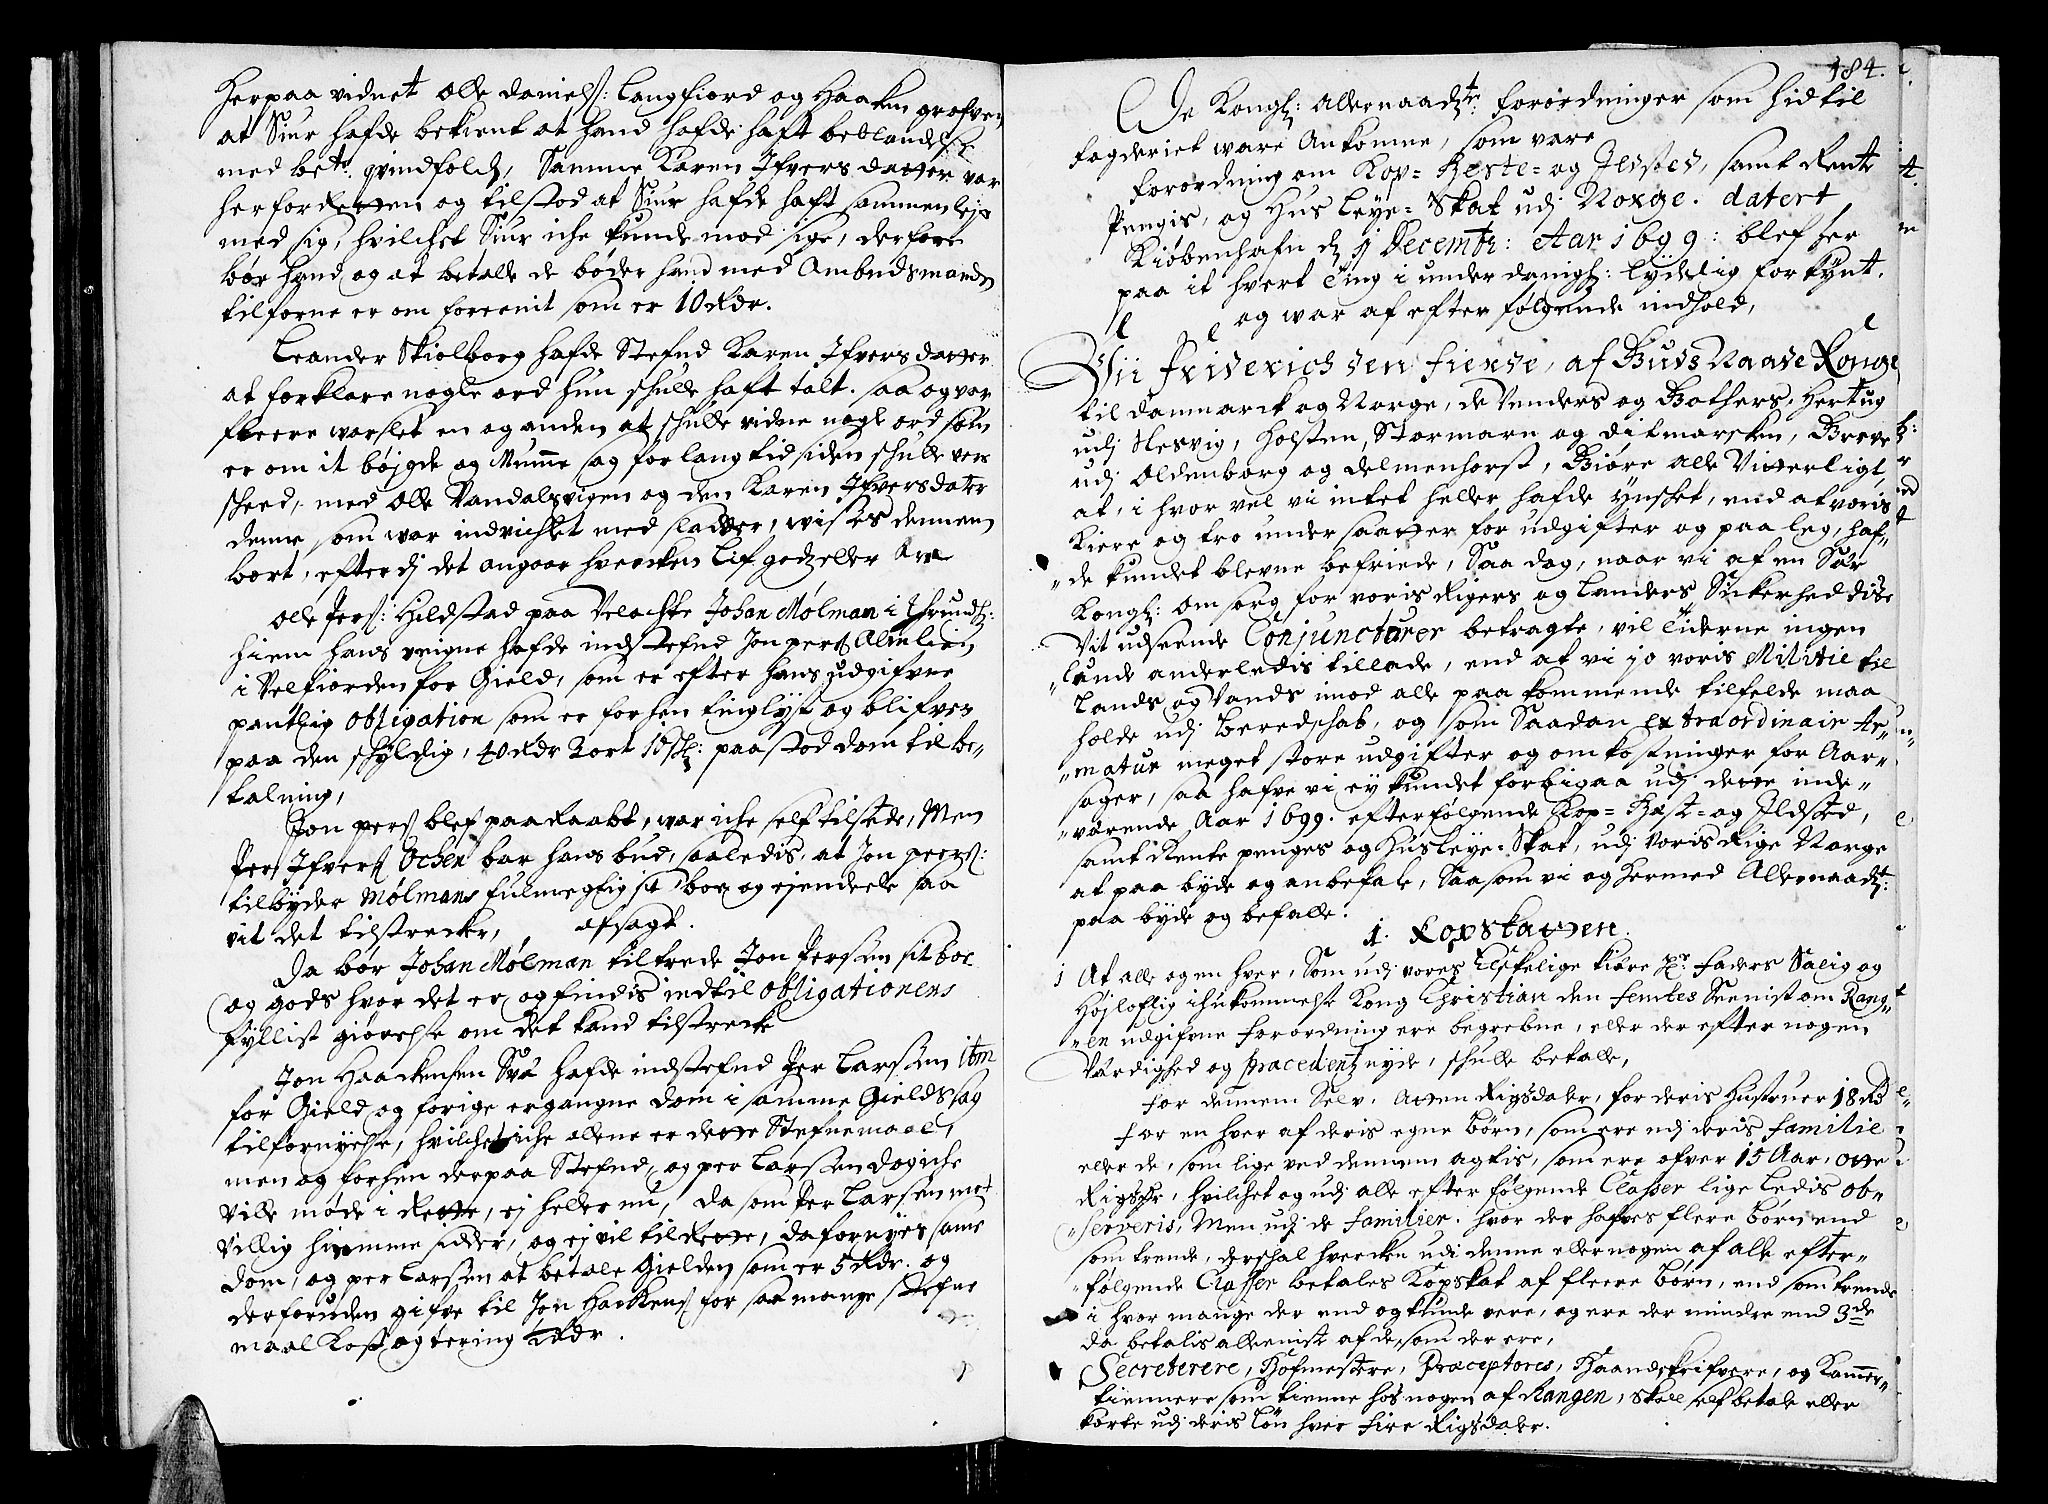 Herpaa vidnet Olle daniels: Langfiord og Haaken grafven
at Siur hafde bekient at hand hafde haft beblandelse
med bete. qvindfolch, Samme Karen Ifvers datter var
her for Retten og tilstod at Siur hafde haft sammenleje
med sig, hvilchet Siur iche kunde mod sige, derfore
bør hand og at betalle de bøder hand med Ambudsmanden
tilforne er om foreenit som er 10 Rdr.
Leander Skiolborg hafde Stefnd Karen Ifversdatter
at forklare nogle ord hun schulle haft talt. saa og var
fleere varslet en og anden at schulle vidne nogle ord som
er om it bøjgde og Mumme sag for lang tid siden schulle vere
scheed, med Olle Vandalsvigen og den Karen Ifversdater
denne som war indvichlet med sladder, wistes dennem
bort, efterdj det angaar hvercken Lif godz eller ære
Olle Pers: Hildstad paa Velachte Johan Mølman i Thrundh:
hiem hans veigne hafde indstefnd Jon pers Almlien
i Velfiorden for Gield, som er efter hans udgifvne
pantlig obligation som er forhen tinglyst og blifver
paa den schyldig, 40 Rdr 2 ort 10 sh: paastod dom til be„
talning,
Jon pers blef paaRaabt, war iche self tilstede, Men
Per Ifvers Ochen bar hans bud, saaledis, at Jon peers:
tilbyder Mølmans fulmegtig sit boe og ejendeele saa
vit det tilstrecker, afsagt.
Da bør Johan Mølman tiltrede Jon Persen sit boe
og gods hvor det er og findis indtil obligationens
fyllist giørelse om det kand tilstrecke
Jon Haackensen Svee hafde indstefnd Per Larssen itm
for Gield og forige ergangne dom i samme Gieldssag
til fornyelse, hvilchet iche allene er dette Stefnemaal,
men og forhen derpaa Stefnd, og per Larssen dog iche
ville møde i Rette, ej heller nu, da som Per Larsen mot
villig hiemme sidder, og ej vil til Rette, da fornyes same
dom, og per Larssen at betale Gielden som er 5 Rdr. og
derforuden gifve til Jon Hackens for saa mange stefne
maal Kost og tering 2 Rdr.
184.
De Kongl: Allernaadste. forordninger som hid til
fogderiet ware Ankomne, som vare
Forordning om Kop= Heste= og Ildsted, samt Rente
Pengis, og Huus Leye= Skat udj Norge. datert
Kiøbenhafn d. 9 Decembr: Aar 1699: blef her
paa it hvert Ting i underdanigh: lydelig forkynt.
og war af efterfølgende indhold,
Wii Friderich den fierde, af Guds Naade Konge
til Danmarck og Norge, de Venders og Gothers, Hertug
udj Slesvig, Holsten, Stormarn og Ditmarsken, Greve
udj Oldenborg og Delmenhorst, Giøre alle Vitterligt,
at, i hvor vel vi intet heller hafde ynsket, end at voris
kiere og tro undersaatter for udgifter og paaleg, haf„
„de kundet blevne befriede, Saa dog, naar vi af en Sær
Kongl: omsorg for voris Rigers og Landers Sickerhed disse
vit udseende Conjuncturer betragte, vil Tiderne ingen
„lunde anderledis tillade, end at vi jo voris Militie til
Lands og Vands imod alle paa kommende tilfelde maa
holde udj beredschab, og som saadan extraordinair Ar„
„matur meget store udgifter og omkostninger for Aar„
sager, saa hafve vi ej kundet forbigaa udj dette inde„
„værende Aar 1699. efterfølgende Kop= Hæst= og Ildsted,
samt Rente penges og Husleye= Skat, udj Voris Rige Norge
at paa byde og anbefale, Saasom vi og hermed Allernaadst:
paa byde og befalle.
1. Kopskatten.
1 At alle og en hver, Som udj vores Elskelige kiære Hr: Faders Salig og
Højloflig ihukommelse Kong Christian den femtes Seenist om Rang„
„en udgifvne forordning ere begrebne, eller der efter nogen
Værdighed og præcedentz nyde, schulle betalle,
For dennem Selv. Atten Rigsdaler, for deris Hustruer 18 Rd
For en hver af deris egne Børn, som ere udj deris Familie
eller de, som lige ved dennem agtis, som ere ofver 15 Aar, otte
Rigsdr, hvilchet og udj alle efter følgende Classer lige Ledis ob„
„serveris, Men udj de familier. hvor der hafves flere børn end
som trende, der schal hvercken udi denne eller nogen af alle efter„
„følgende Classer betales Kopskat af fleere Børn, end som trende
i hvor mange der end og kunde vere, og ere der mindre end 3de
da betalis alleeniste af de, som der ere,
Secreterere, Hofmestere, Præceptores, Haandskrifvere, og Kammer„
tiennere som tienne hos nogen af Rangen, skall self betale eller
korte udj deris Løn hver Fire Rigsdaler.